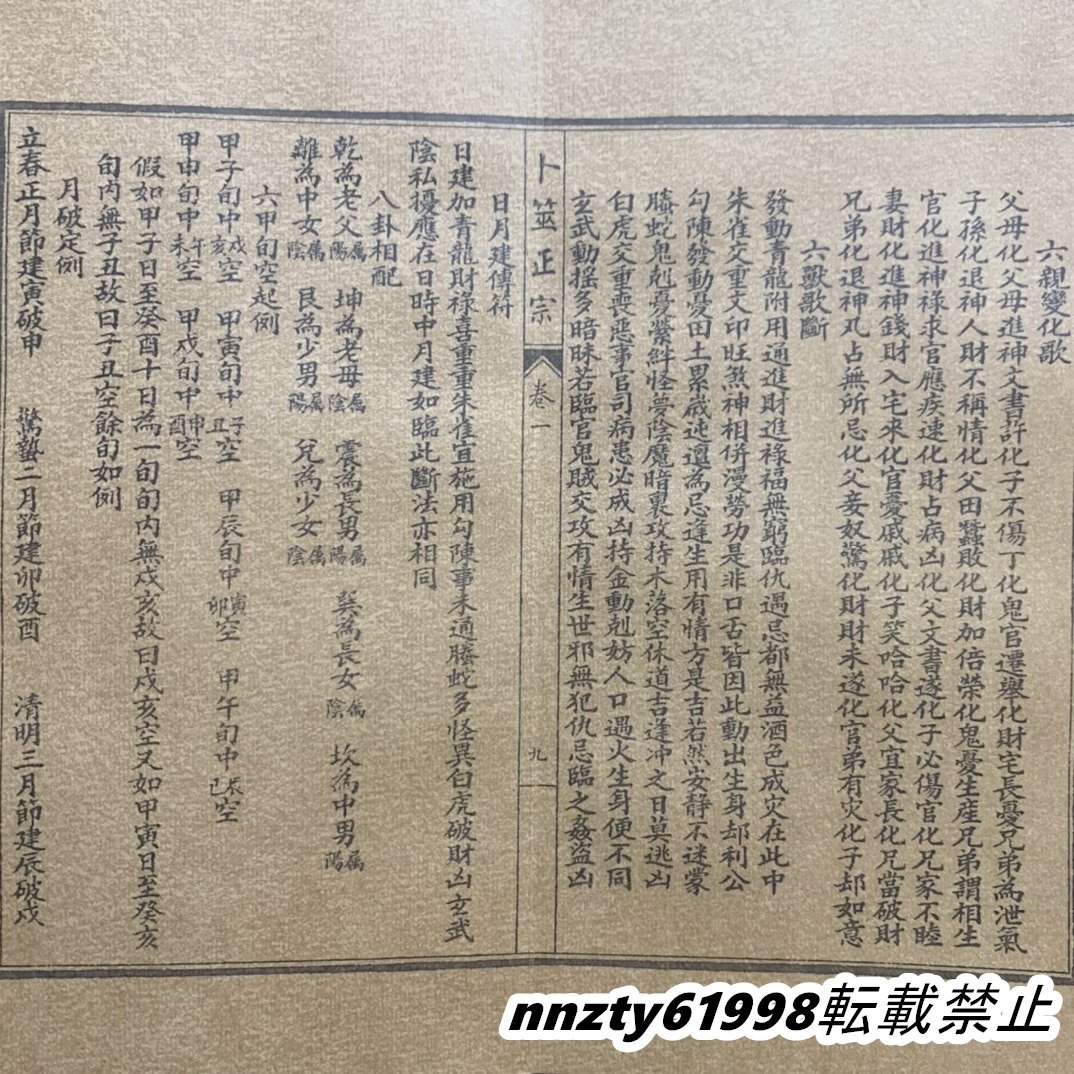 六親變化歌
父母化父母進神文書許化子不傷丁化鬼官遷舉化財宅長憂兄弟為泄氣
子孫化退神人財不稱情化父田蠶敗化財加倍榮化鬼憂生産兄弟謂相生
官化進神祿求官應疾速化財占病凶化父文書遂化子必傷官化兄家不睦
妻財化進神錢財入宅來化官憂戚戚化子笑哈哈化父宜家長化兄當破財
兄弟化退神凡占無所忌化父妾奴驚化財財未遂化官弟有灾化子却如意
六獸歌斷
發動青龍附用通進財進祿福無窮臨仇遇忌都無益酒色成灾在此中
朱雀交重文印旺煞神相併漫勞功是非口舌皆因此動出生身却利公
勾陳發動憂田土累歲迍邅為忌逢生用有情方是吉若然安靜不迷蒙
螣蛇鬼剋憂縈絆怪夢陰魔暗裏攻持木落空休道吉逢冲之日莫逃凶
白虎交重喪惡事官司病患必成凶持金動剋妨人口遇火生身便不同
玄武動摇多暗昧若臨官鬼賊交攻有情生世邪無犯仇忌臨之姦盗凶
卜筮正宗 卷一 九
日月建傳符
日建加青龍財祿喜重重朱雀宜施用勾陳事未通螣蛇多怪異白虎破財凶玄武
陰私擾應在日時中月建如臨此斷法亦相同
八卦相配
乾為老父屬陽 坤為老母屬陰 震為長男屬陽 巽為長女屬陰 坎為中男屬陽
離為中女屬陰 艮為少男屬陽 兌為少女屬陰
六甲旬空起例
甲子旬中戌亥空 甲寅旬中子丑空 甲辰旬中寅卯空 甲午旬中辰巳空
甲申旬中午未空 甲戌旬中申酉空
假如甲子日至癸酉十日為一旬旬内無戌亥故曰戌亥空又如甲寅日至癸亥
旬内無子丑故曰子丑空餘旬如例
月破定例
立春正月節建寅破申 驚蟄二月節建卯破酉 清明三月節建辰破戌
nnzty61998転載禁止